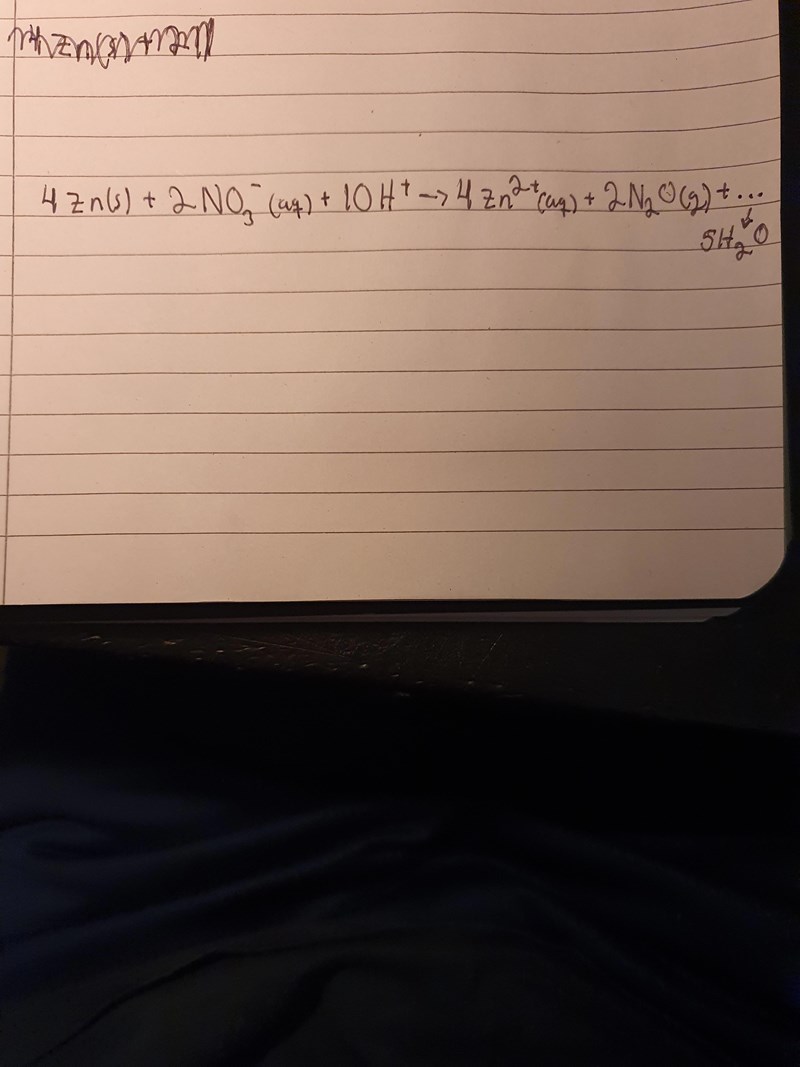 4 Zn(s) + 2 NO₃⁻ (aq) + 10 H⁺ → 4 Zn²⁺(aq) + 2N₂O(g) + ...
↓
5H₂O